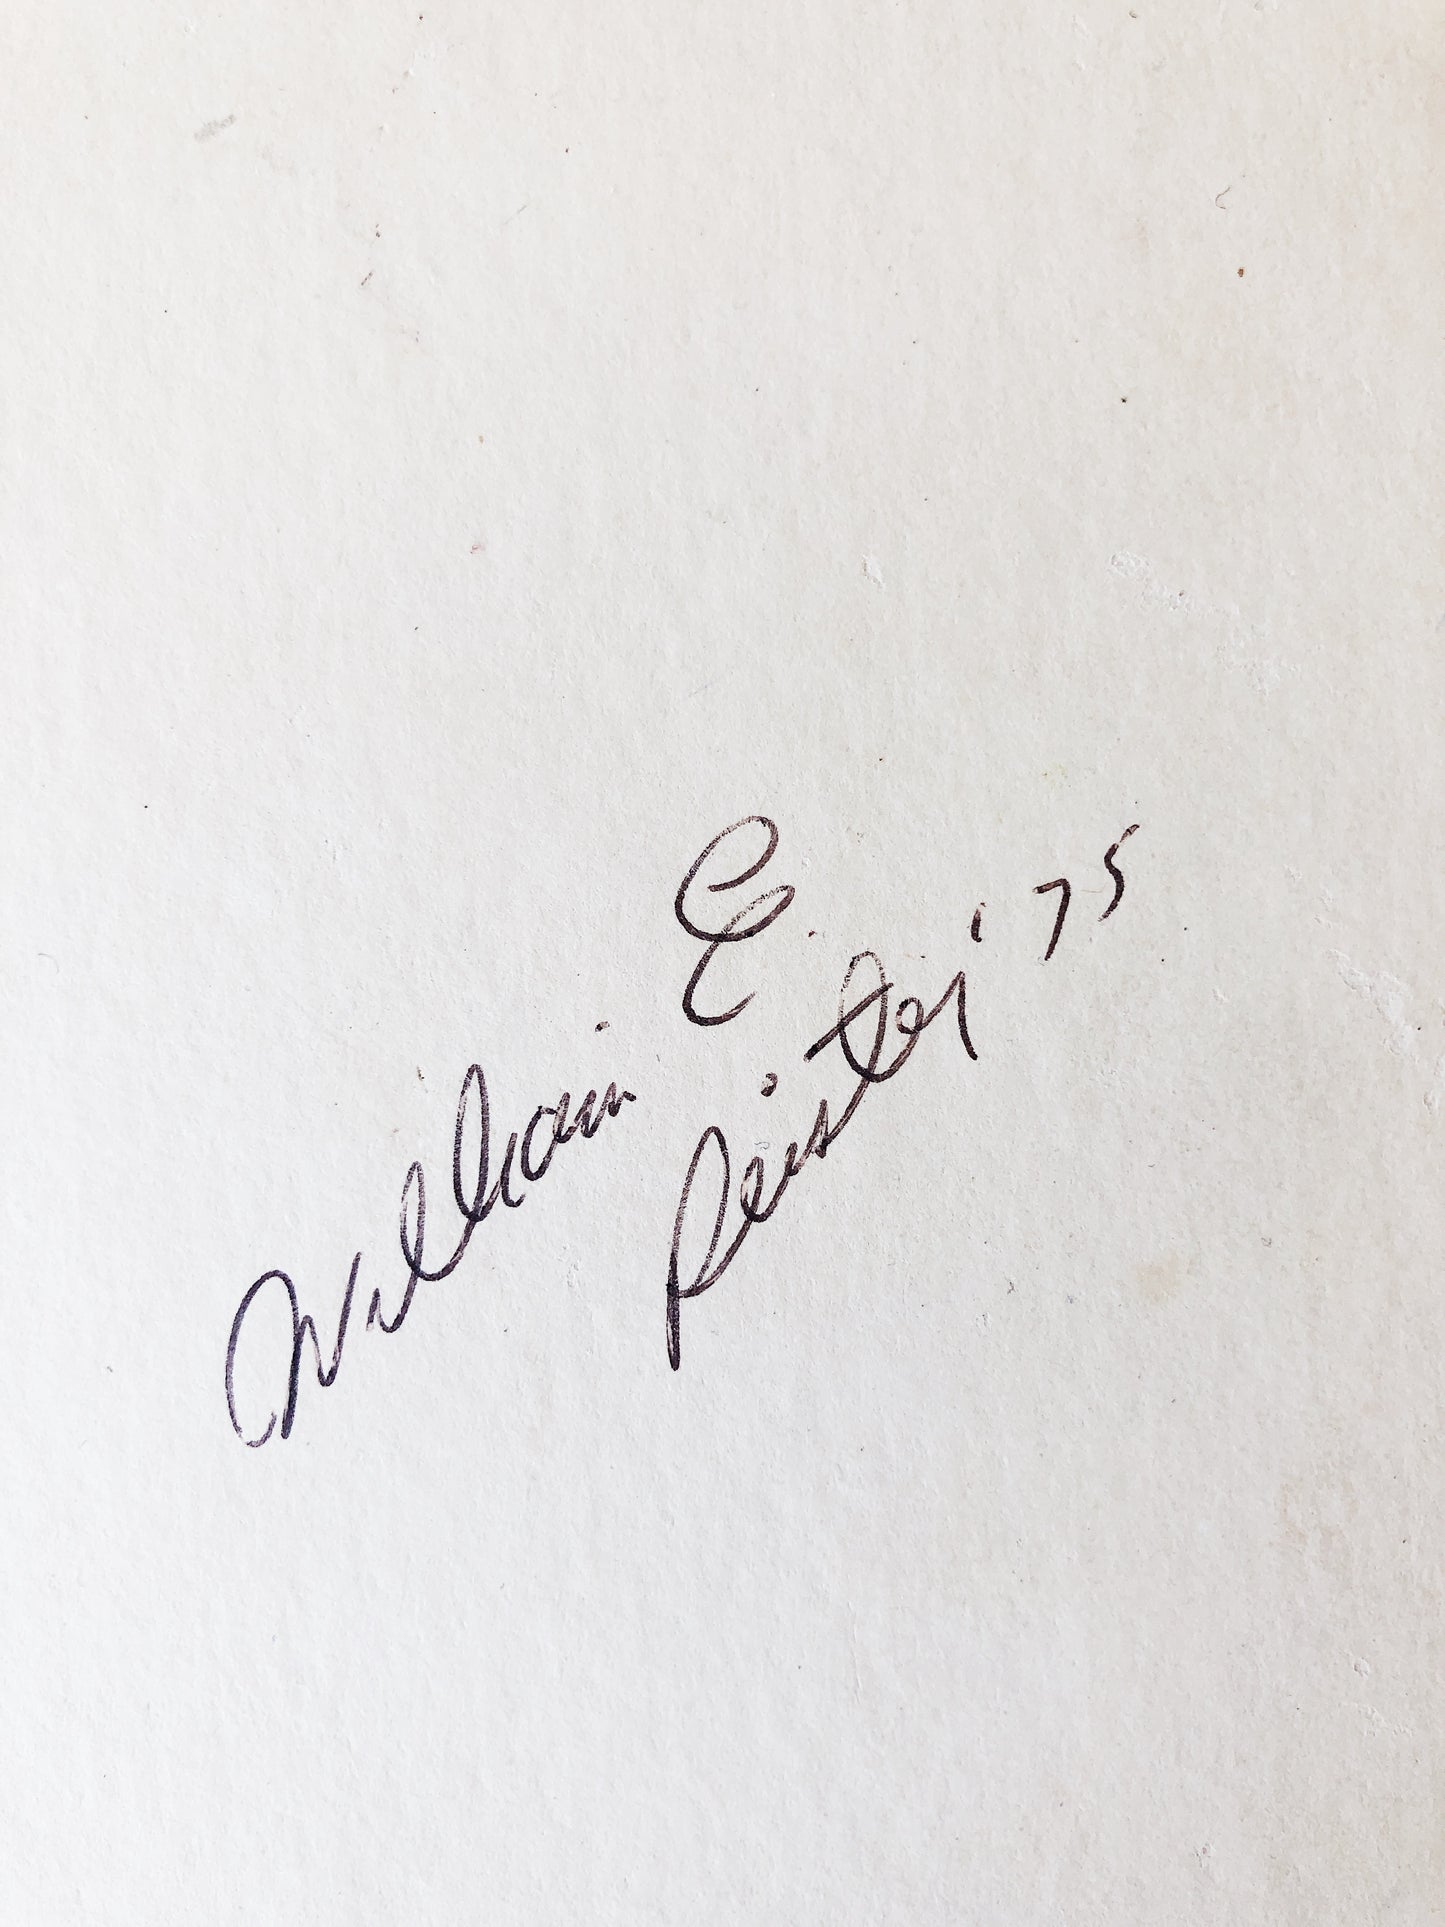 William E.
Peister '75